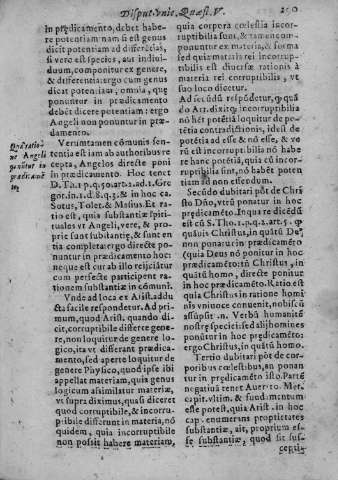 Disput. Vnic. Quæst. V.
250
in prædicamento, debet habere
potentiam nam si est genus
dicit potentiam ad differẽcias,
si vero est species, aut indiuiduum,
componitur ex genere,
& differentia: ergo cum genus
dicat potentiam, omnia, que
ponuntur in prædicamento
debẽt dicere potentiam: ergo
Angeli non ponuntur in prædamento.
Verumtamen cõmunis sententia
est iam ab authoribus recepta,
Angelos directe poni
in prædicamento. Hoc tenet
D. Th. 1. p. q. 50. ar. 2. ad. 1. Gregor.
in. 1. d. 8. q. 3. & in hoc ca.
Sotus, Tolet. & Masius. Et ratio
est, quia substantiæ spirituales
vt Angeli, vere, & proprie
sunt substantiæ, & sunt entia
completa: ergo directe ponuntur
in prædicamento hoc:
neque est cur ab illo reijciãtur
cum perfecte participent rationem
substantiæ in cõmuni.
Vnde ad loca ex Arist. adducta
facile respondetur. Ad primum,
quod Arist. quando dicit,
corruptibile differre genere,
non loquitur de genere logico,
ita vt differant prædicamento,
sed aperte loquitur de
genere Physico, quod ipse ibi
appellat materiam, quia genus
logicum assimilatur materiæ,
vt supra diximus, quasi diceret
quod corruptibile, & incorruptibile
differunt in materia, nõ
quidem, quia incorruptibile
non possit habere materiam,
quia corpora cœlestia incorruptibilia
sunt, & tamen componuntur
ex materia, & forma
sed intendit quod materia rei
incorruptibilis est diuersæ rationis à
materia rei corruptibilis, vt
suo loco dicetur.
do Arist. dixit, incorruptibilia
nõ habere potẽtiã loquitur de potẽtia
contradictionis, idest de
potẽtia ad esse & nõ esse, & verũ
est incorruptibilia nõ habere
hanc potẽtiã, quia cũ incorruptibilia
sint, nõ habẽt potentiam
ad non essendum.
Secũdo dubitari põt de Christo
Dño, vtrũ ponatur in hoc
prædicamẽto. In qua re dicẽdũ
est cũ S. Tho. 1. p. q. 2. art. 5.
quãuis Christus, in quãtũ Deus
non ponatur in prædicamẽto
(quia Deus nõ ponitur in hoc
prædicamẽto) tñ Christus, in
quãtũ homo, directe ponitur
in hoc prædicamẽto. Ratio est
quia Christus in ratione hominis
vniuoce conuenit, nobiscũ
assũpsit .n. Verbũ humanitẽ
nostrę speciei: sed alij homines
ponũtur in hoc prædicamẽto:
ergo Christus, in quãtũ homo.
Tertio dubitari põt de corporibus
cœlestibus, an ponantur
in prædicamẽto isto. Partẽ
negatiuã tenet Auerro. Met.
capit. vltim. & fundamentum
esse potest, quia Arist. in hoc
cap. enumerans proprietates
substantiæ, ait, proprium esse
substantiæ, quod sit sus-